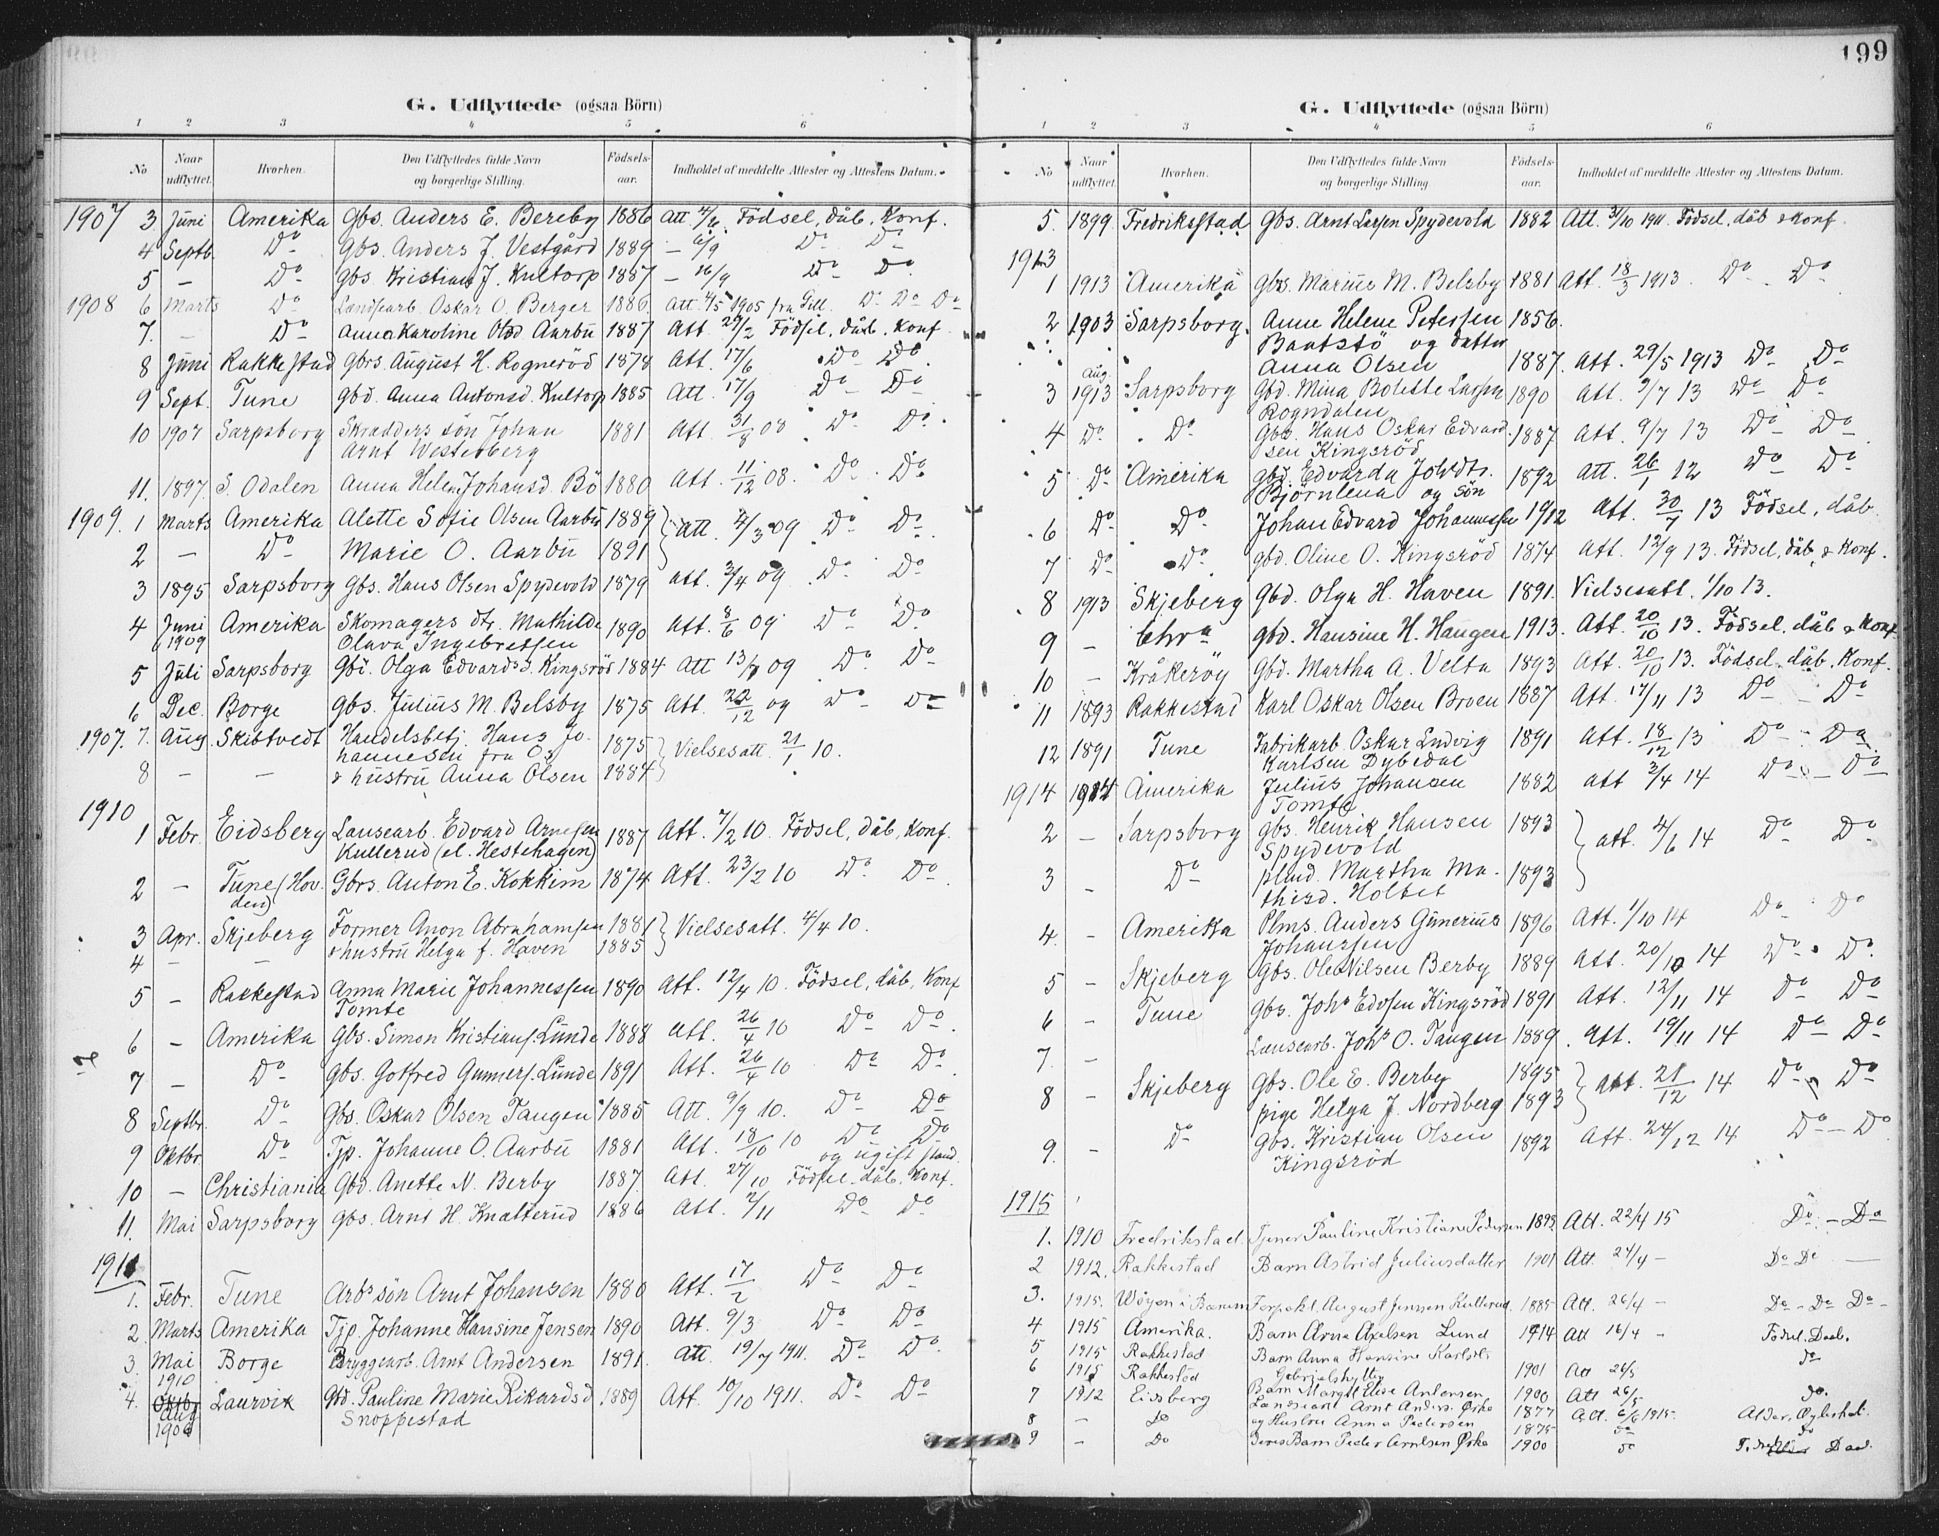 G. Udflyttede (ogsaa Börn)
1 2 3 4 5 6
No Naar udflyttet. Hvorhen. Den Udflyttedes fulde Navn og borgerlige Stilling. Födselsaar. Indholdet af meddelte Attester og Attestens Datum.
1907 3 Juni Amerika Gbs. Anders E. Bereby 1886 Att 4/6 Födsel, dåb, Konf.
4 Septb. Do Gbs. Anders J. Vestgård 1889 — 6/9 Do Do
5 — Do Gbs Kristian J. Kultorp 1887 — 16/9 Do Do
1908 6 Marts Do Landsarb. Oskar O. Berger 1886 Att 4/5 1905 fra Gill. Do Do Do
7. — Do Anna Karoline Olsd Aarbu 1887 Att. 29/2 Födsel, dåb, Konf
8 Juni Rakkestad Gbrs. August H. Rogneröd 1878 Att. 17/6 Do Do
9 Sept. Tune Gbd. Anna Antonsd. Kultorp 1885 Att. 17/9 Do Do
10 1907 Sarpsborg Skradders sön Johan 1881 Att. 31/8 08 Do Do
Arnt Westerberg
11. 1897. S. Odalen Anna Helen Johansd. Bö 1880 Att. 11/12 08. Do Do
1909. 1 Marts Amerika Alette Sofie Olsen Aarbu 1889 Att. 4/3 09 Do Do
2 — Do Marie O. Aarbu 1891
3 1895 Sarpsborg Gbs. Hans Olsen Spydevold 1879 Att. 3/4 09 Do Do
4 Juni 1909 Amerika Skomagers dtr. Mathilde 1890 Att. 8/6 09 Do Do
Olava Ingebretsen
5 Juli Sarpsborg Gbd. Olga Edvardsd. Kingsröd 1884 Att 13/7 09 Do Do
6 Dec. Borge Gbs. Julius M. Belsby 1875 Att. 22/12 09 Do Do
1907. 7. Aug. Skibtvedt Handelsbetj. Hans Jo- 1875 Vielsesatt. 21/1 10.
hannesen fra Os
8 — — & hustru Anna Olsen 1884
1910
1 Febr. Eidsberg Lausearb. Edvard Arnesen 1887 Att. 7/2 10. Födsel, dåb, Konf.
Kullerud (el. Hestehagen)
2 — Tune (Hovden) Gbrs. Anton E. Kokkim 1874 Att. 23/2 10 Do Do
3 Apr. Skjeberg Former Anon Abrahamsen 1881 Vielsesatt. 4/4 10.
4 — — & hustru Helga f. Haven 1885
5 — Rakkestad Anna Marie Johannessen 1890 Att. 12/4 10. Födsel, dåb, Konf
Tomte
6 — Amerika Gbs. Simon Kristians. Lunde 1888 Att. 26/4 10 Do Do
7 — Do Gbs. Gotfred Gunners. Lunde 1891 Att. 26/4 10 Do Do
8 Septbr. Do Gbs. Oskar Olsen Tangen 1885 Att. 9/9 10. Do Do
9 Oktbr Do Tjp. Johanne O. Aarbu 1881 Att. 18/10 10 Do Do
og ugift stand.
10 — Christiania Gbd. Anette N. Berby 1887. Att. 27/10 Födsel, dåb, Konf.
11. Mai Sarpsborg Gbs. Arnt H. Knatterud 1886 Att. 2/11 Do Do
1911
1. Febr. Tune Arbs sön Arnt Johansen 1880 Att. 17/2 Do Do
2 Marts Amerika Tjp. Johanne Hansine Jensen 1890 Att. 9/3 Do Do
3. Mai 1910 Borge Bryggearb. Arnt Andersen 1891. Att 19/7 1911. Do Do
4. Oktbr Aug 1906 Laurvik Gbd. Pauline Marie Rikardsd 1889 Att. 10/10 1911. Do Do
Snoppestad
199
G. Udflyttede (ogsaa Börn)
1 2 3 4 5 6
No Naar udflyttet. Hvorhen. Den Udflyttedes fulde Navn og borgerlige Stilling. Födselsaar. Indholdet af meddelte Attester og Attestens Datum.
5. 1899 Fredriksstad Gbs. Arnt Larsen Spydevold 1882 Att. 31/10 1911. Födsel, dåb & Konf.
1913
1 1913 Amerika Gbs. Marius M. Belsby 1881 Att. 18/3 1913 Do Do
2 1903 Sarpsborg. Anne Helene Petersen 1856.
Baatstö og datter
Anna Olsen 1887. Att. 29/5 1913 Do Do
3 Aug. 1913 Sarpsborg Gbd. Mina Bolette Larsen 1890 Att. 9/7 13 Do Do
Rogndalen
4 Do Do Gbs. Hans Oskar Edvard- 1887 Att. 9/7 13 Do Do
sen Kingsröd
5 Do Amerika Gbd. Edvarda Johsdtr. 1892 Att. 26/1 12 Do Do
Björnlena og sön
6 Do Do Johan Edvard Johannessen 1912 Att. 30/7 13 Födsel, dåb.
7 Do Do Gbd. Oline O. Kingsröd 1874 Att. 12/9 13. Födsel, dåb & Konf.
8 1913 Skjeberg Gbd. Olga H. Haven 1891. Vielsesatt. 1/10 13.
9 — Chra Gbd. Hansine H. Haugen 1913. Att. 20/10 13. Födsel, dåb & Konf
10 — Kråkeröy Gbd. Martha A. Velta 1893 Att. 20/10 13. Födsel, dåb, Konf.
11 1893 Rakkestad Karl Oskar Olsen Broen 1887 Att. 17/11 13 Do — Do
12 1891 Tune Fabrikarb. Oskar Ludvig 1891 Att. 18/12 13 Do Do
Karlsen Dybedal
1914 1914 Amerika Julius Johansen 1882 Att 3/4 14 Do — Do
Tomte
2 — Sarpsborg Gbs. Henrik Hansen 1893 Att. 4/6 14 Do Do
Spydevold
3 — Do Martha Ma- 1893
thisd. Holtet
4. — Amerika Plms. Anders Gunerius 1896 Att. 1/10 14 Do Do
Johansen
5 — Skjeberg Gbs. Ole Nilsen Berby 1889 Att. 20/10 14 Do Do
6 — Tune Gbs. Johs Edvsen Kingsröd 1891 Att. 12/11 14 Do Do
7. — Lausearb. Johs O. Tangen 1889. Att. 19/11 14 Do — Do
8 — Skjeberg Gbs. Ole E. Berby 1895 Att. 21/12 14 Do Do
pige Helga J. Nordberg 1893
9. — Do Gbs. Kristian Olsen 1892 Att. 24/12 14 Do — Do
Kingsröd
1915
1. 1910 Fredrikstad. Tjener Pauline Kristiane Pedersen 1893 Att. 22/4 15 Do — Do
2 1912. Rakkestad Barn Astrid Juliusdatter 1901 Att 24/4 — Do Do —
3. 1915. Wöyen i Bærum August Jensen Kullerud 1885 Att. 26/4 — Do — Do Do —
4 1915 Amerika. Barn Arne Axelsen Lund 1914 Att 16/4 — Födsel. Daab.
5 1915 Rakkestad Barn Anna Hansine Karlsdtr do
6 1915 Rakkestad 1901 Att 26/5
7 1912 Eidsberg Barn Margit Elise Antonsen 1900 Att 26/5 do.
Arnt Anders. Ørke 1877 Att. 6/6 1915. Alder,
8 — Do og Hustru Anna Pedersen 1875 do do
9 — Do deres Barn Peder Arntsen Ørke 1900 do